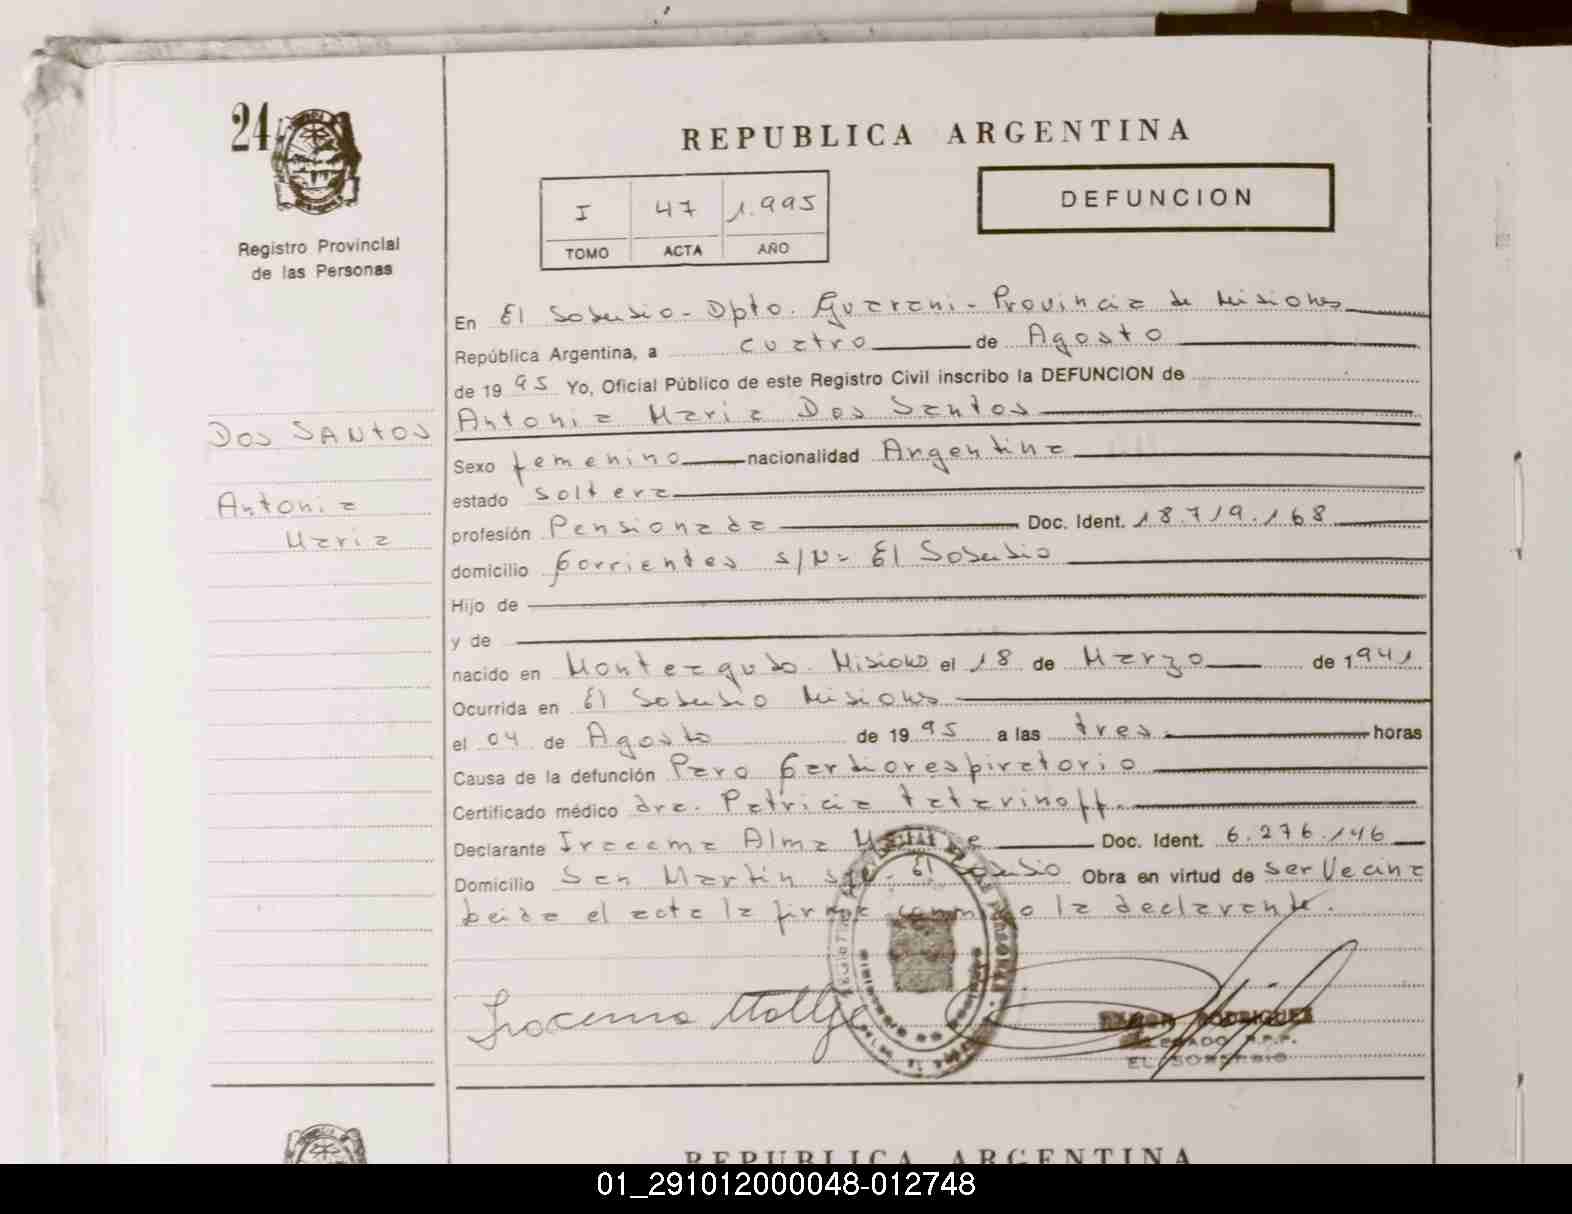 24
Registro Provincial
de las Personas
REPUBLICA ARGENTINA
DEFUNCION
I 47 1.995
TOMO ACTA AÑO
En El Soberbio - Dpto. Guarani - Provincia de Misiones
República Argentina, a cuatro de Agosto
de 1995 Yo, Oficial Público de este Registro Civil inscribo la DEFUNCION de
Antonia Maria Dos Santos
DOS SANTOS
Antonia
Maria
Sexo femenino nacionalidad Argentina
estado soltera
profesión Pensionada Doc. Ident. 18.719.168
domicilio Corrientes s/N= El Soberbio
Hijo de
y de
nacido en Monteagudo. Misiones el 18 de Marzo de 1941
Ocurrida en El Soberbio Misiones
el 04 de Agosto de 1995 a las tres horas
Causa de la defunción Paro Cardiorespiratorio
Certificado médico dra. Patricia tatarinoff.
Declarante Iracema Alma Doc. Ident. 6.276.146
Domicilio San Martin El Soberbio Obra en virtud de ser Vecina
Leida el acta la firma conmigo la declarante.
RAMON RODRIGUEZ
DELEGADO R.P.P.
EL SOBERBIO
REPUBLICA ARGENTINA
01_291012000048-012748